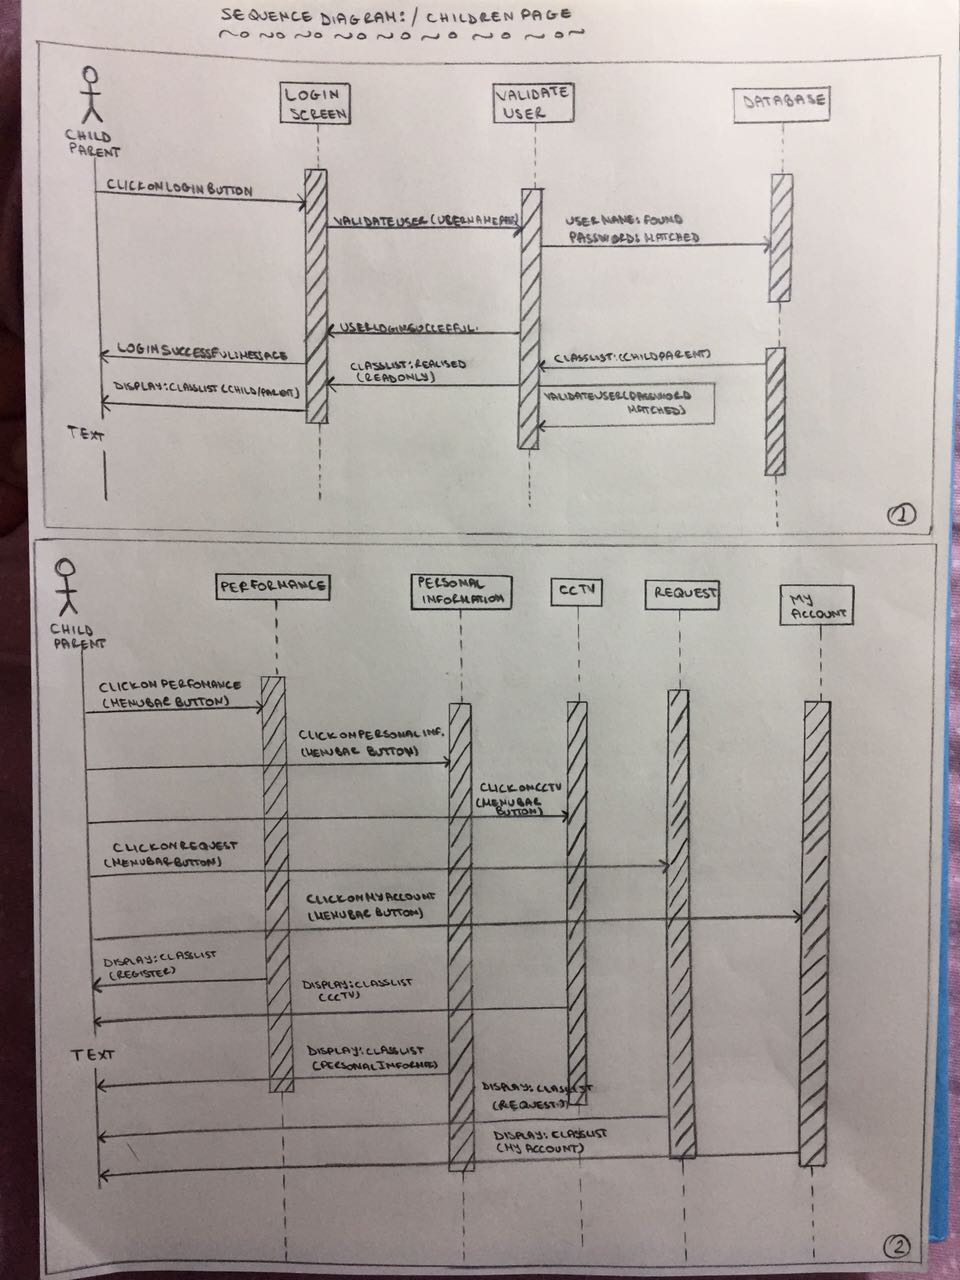 SEQUENCE DIAGRAM:/CHILDREN PAGE
CHILD
PARENT
LOGIN
SCREEN
VALIDATE
USER
DATABASE
CLICKONLOGINBUTTON
VALIDATEUSER(USERNAME
USERNAME:FOUND
PASSWORD:MATCHED
USERLOGINSUCCEFUL.
LOGINSUCCESSFULMESSAGE
CLASSLIST:REALISED
(READONLY)
CLASSLIST:(CHILDPARENT)
DISPLAY:CLASSLIST(CHILD/PARENT)
VALIDATEUSER(PASSWORD
MATCHED)
TEXT
1
CHILD
PARENT
PERFORMANCE
PERSONAL
INFORMATION
CCTV
REQUEST
MY
ACCOUNT
CLICKONPERFOMANCE
(MENUBARBUTTON)
CLICKONPERSONALINF.
(MENUBAR BUTTON)
CLICKONCCTV
(MENUBAR
BUTTON)
CLICKONREQUEST
(MENUBARBUTTON)
CLICKONMYACCOUNT
(MENUBAR BUTTON)
DISPLAY:CLASSLIST
(REGISTER)
DISPLAY:CLASSLIST
(CCTV)
TEXT
DISPLAY:CLASSLIST
(PERSONALINFORMAT)
DISPLAY:CLASSLIST
DISPLAY:CLASSLIST
(MY ACCOUNT)
2